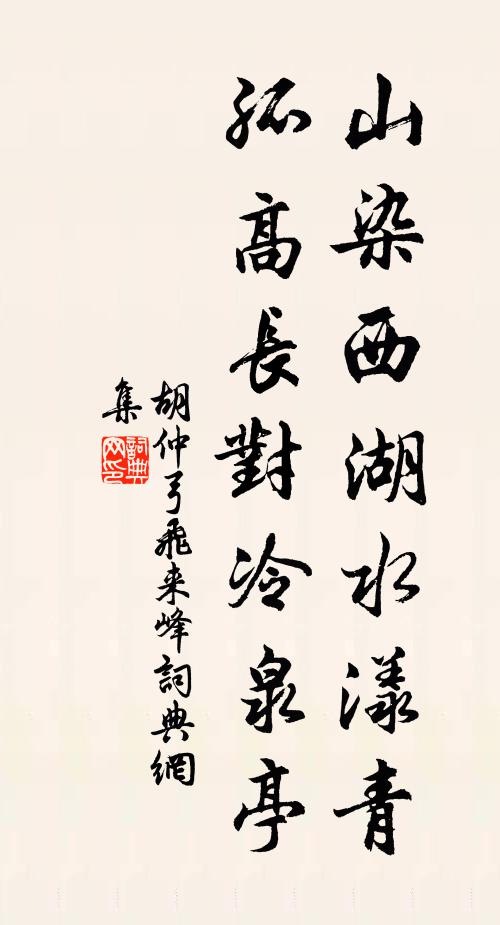 山染西湖水漾青
孤高長對冷泉亭
胡仲弓飛来峰詞典網
集
詞典網印